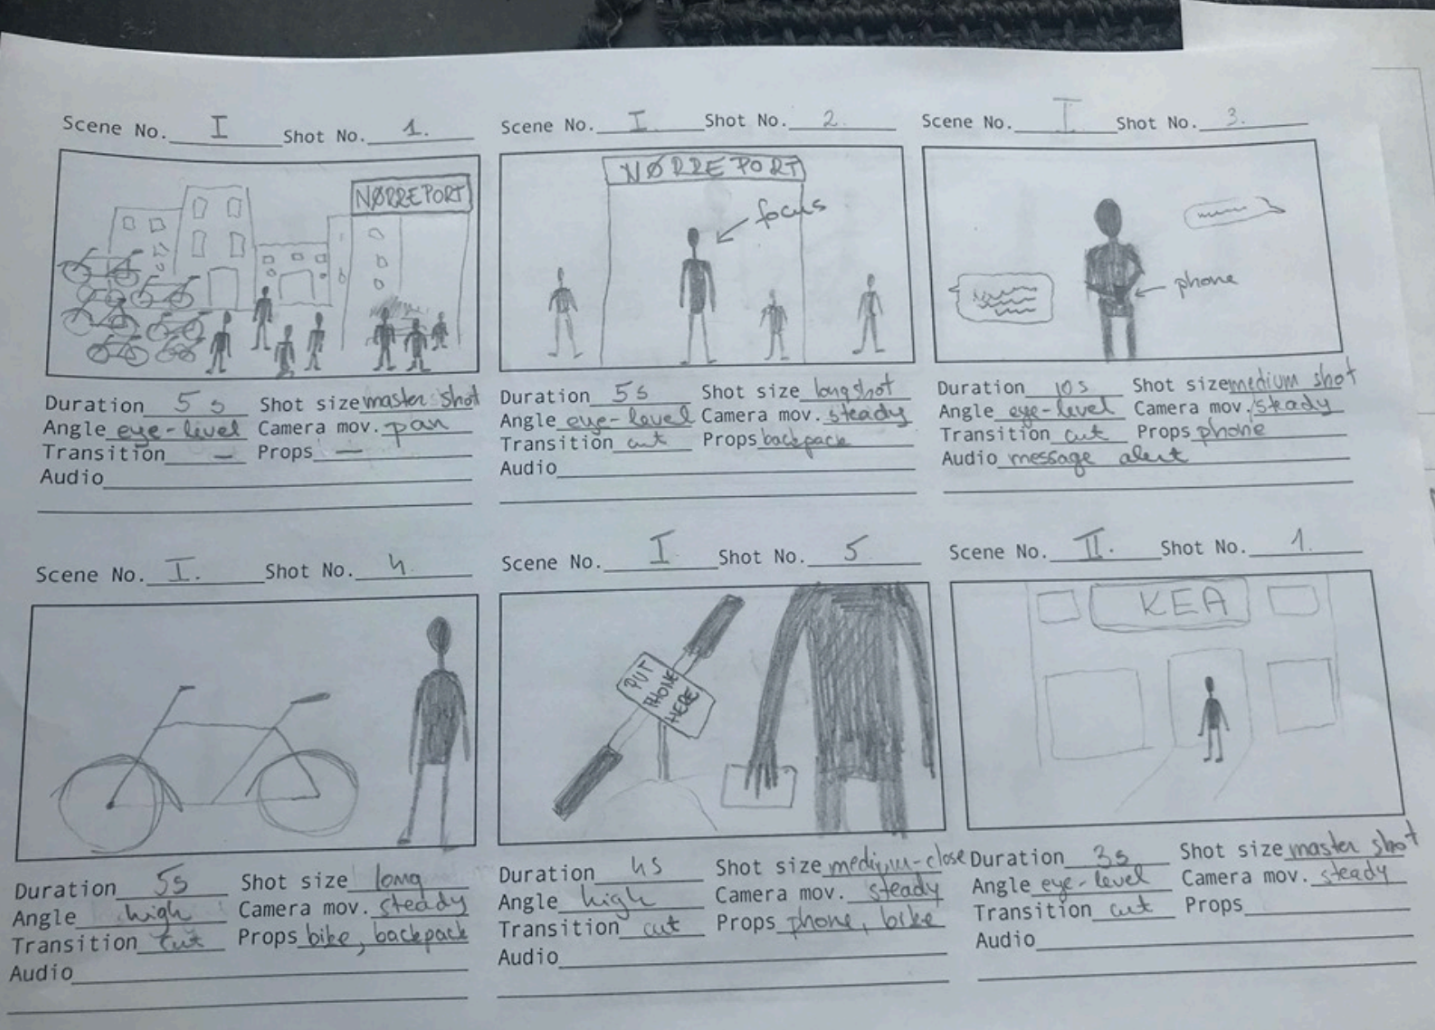 Scene No. I Shot No. 1.
NØRREPORT
Duration 5 s Shot size master shot
Angle eye-level Camera mov. pan
Transition — Props —
Audio
Scene No. I Shot No. 2.
NØRREPORT
focus
Duration 5 s Shot size long shot
Angle eye-level Camera mov. steady
Transition cut Props backpack
Audio
Scene No. I Shot No. 3.
phone
Duration 10 s Shot size medium shot
Angle eye-level Camera mov. steady
Transition cut Props phone
Audio message alert
Scene No. I. Shot No. 4
Duration 5s Shot size long
Angle high Camera mov. steady
Transition cut Props bike, backpack
Audio
Scene No. I Shot No. 5
PUT
PHONE
HERE
Duration 4s Shot size medium-close
Angle high Camera mov. steady
Transition cut Props phone, bike
Audio
Scene No. II. Shot No. 1.
KEA
Duration 3s Shot size master shot
Angle eye-level Camera mov. steady
Transition cut Props
Audio